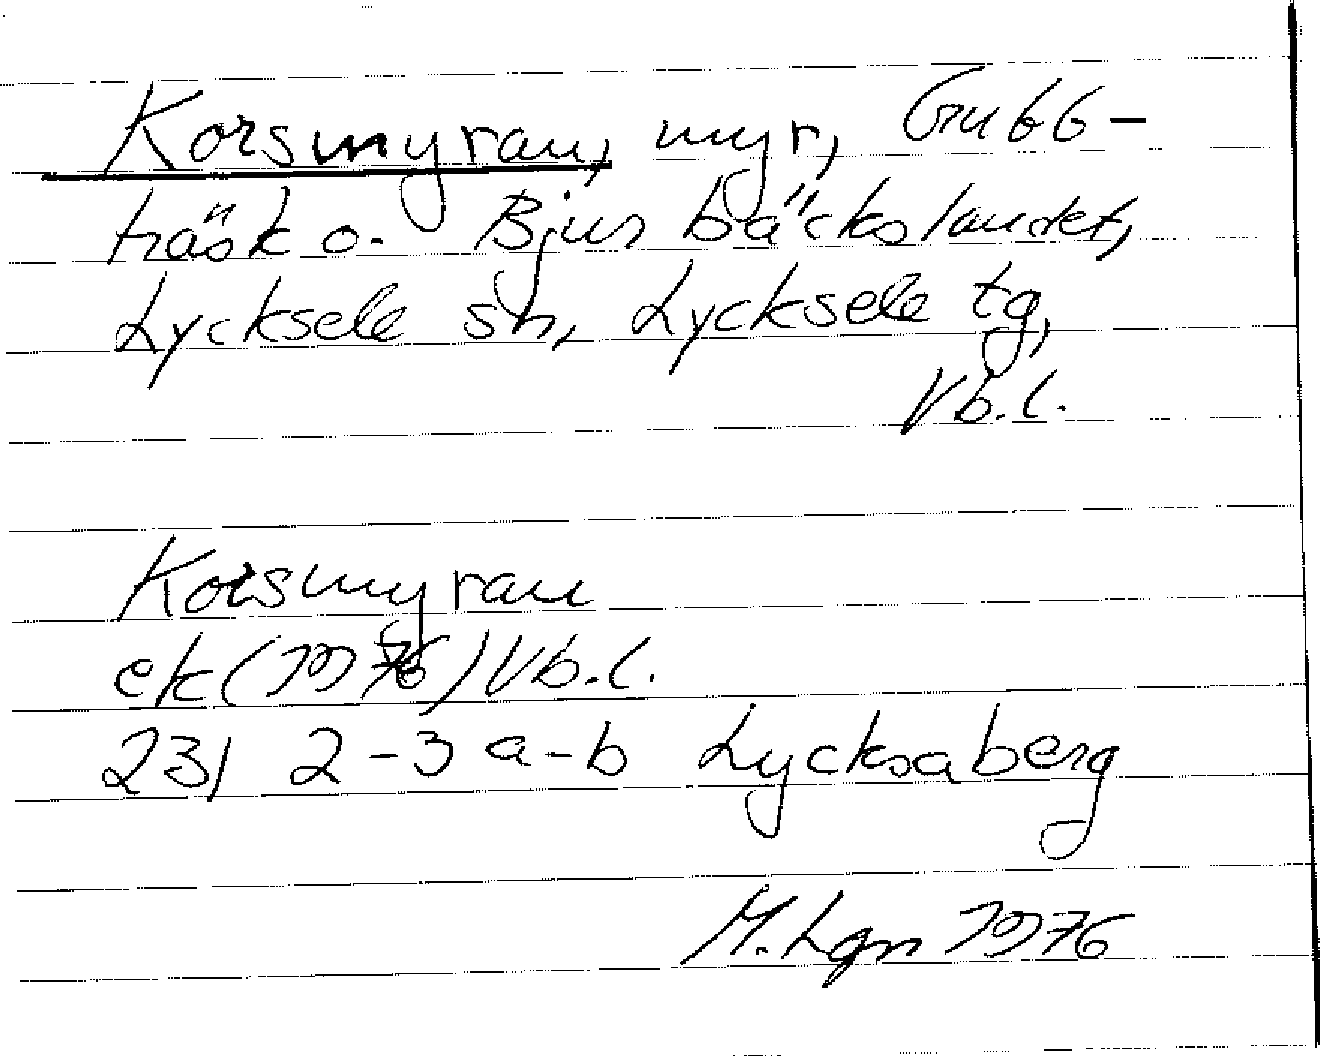 Korsmyran, myr, Grubb-
träsk o. Bjurbäckslandet,
Lycksele sn, Lycksele tg,
Vb.l.
Korsmyran
ek (1976) Vb.l.
23J 2-3 a-b Lycksaberg
M. Lgn 1976